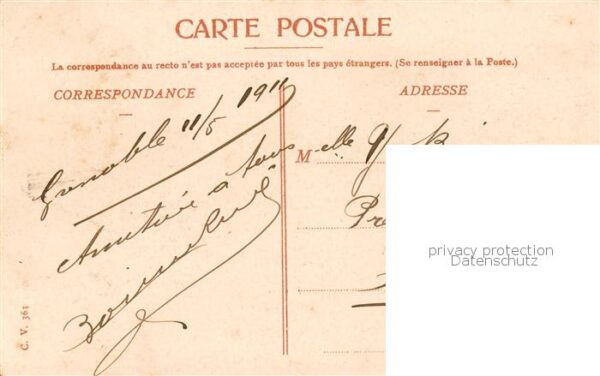 CARTE POSTALE
La correspondance au recto n'est pas acceptée par tous les pays étrangers. (Se renseigner à la Poste.)
CORRESPONDANCE
ADRESSE
Grenoble 11/5 1911
Amitié à tous
Melle
Pr
C. V. 361
privacy protection
Datenschutz